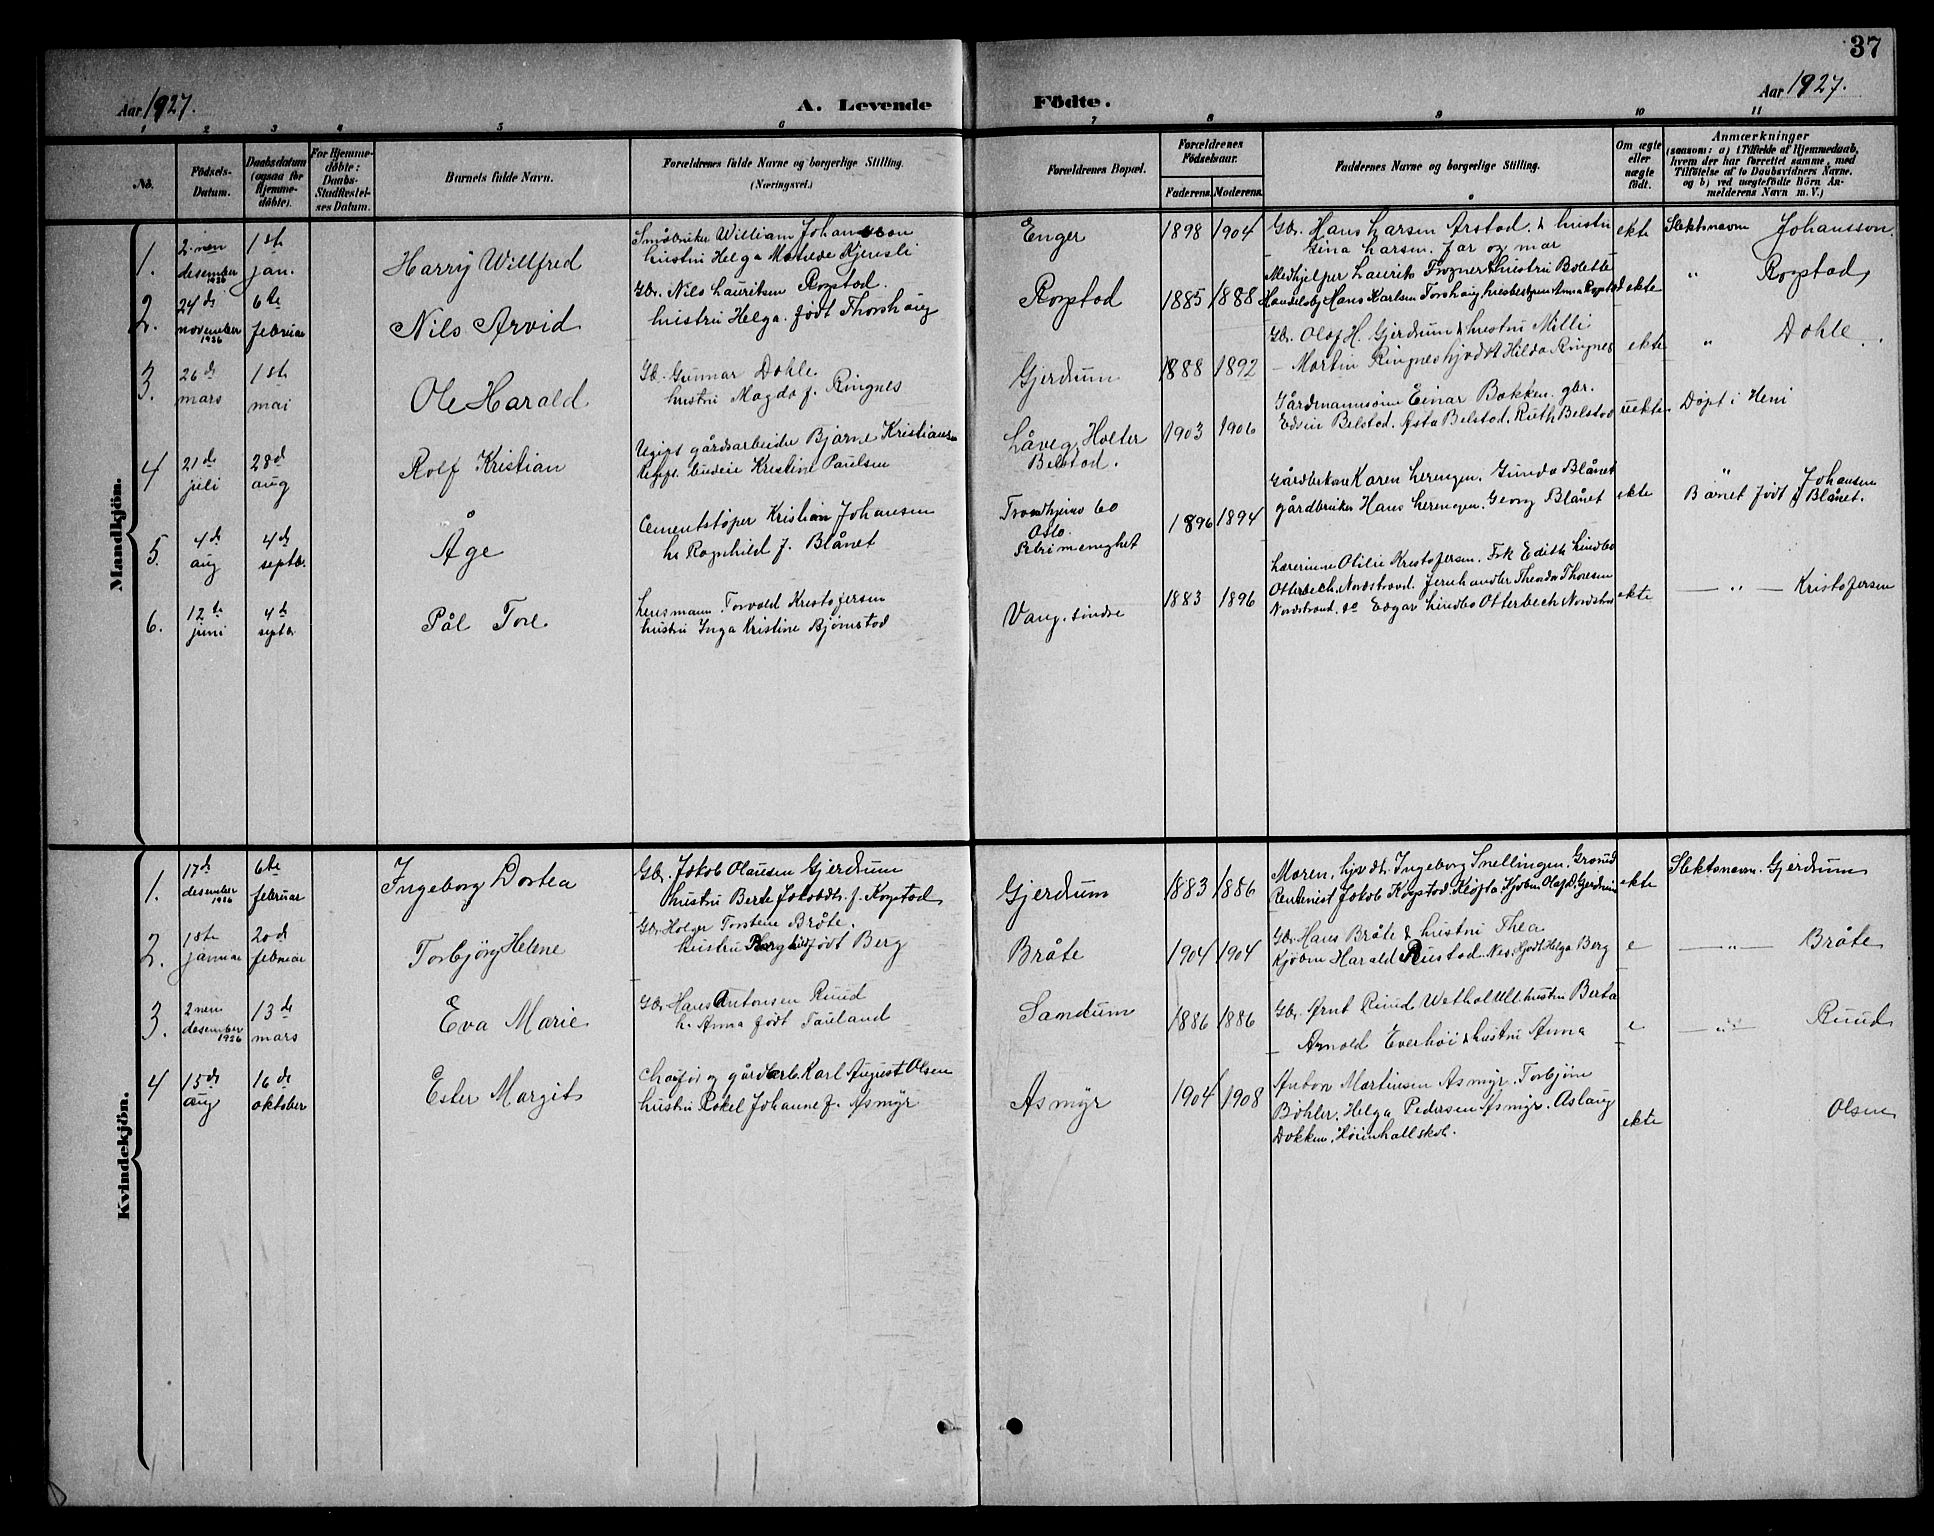 37
Aar 1927. A. Levende Födte. Aar 1927.
1 2 3 4 5 6 7 8 9 10 11
No. Födsels-Datum. Daabsdatum (ogsaa for Hjemmedöbte). For Hjemmedöbte: Daabs-Stadfæstelses Datum. Barnets fulde Navn. Forældrenes fulde Navne og borgerlige Stilling. (Næringsvei.) Forældrenes Bopæl. Forældrenes Födselsaar. Faderens. Moderens. Faddernes Navne og borgerlige Stilling. Om ægte eller uægte født. Anmærkninger (saasom: a) i Tilfælde af Hjemmedaab, hvem der har forrettet samme, med Tilföielse af to Daabsvidners Navne, og b) ved uægtefödte Börn Anmelderens Navn m. V.)
Mandkjön.
1. 2-nen desember 1926 1ste jan. Harry Willfred
Småbruker William Johansson
hustru Helga Matilde Kjensli
Enger 1898 1904
Gbr. Hans Larsen Arstad. & hustru
Gina Larsen. Far og mor
ekte Slektsnavn Johansson.
2. 24de november 1926 6te februar Nils Arvid
Gbr. Nils Lauritsen Rogstad.
hustru Helga. født Thorshaug
Rogstad 1885 1888
Medhjelper Laurits Frogner & hustru Bolette
Handelsbj Hans Karlsen Torshaug, husbestyrer Anna Rogstad
ekte " Rogstad
3. 26de mars 1ste mai Ole Harald
Gb. Gunnar Dohle.
hustru Magda f. Ringnes
Gjerdrum 1888 1892
Gbr. Olaf H. Gjerdrum & hustru Milli
— Martin Ringnes hjvdt Hilda Ringnes
ekte " Dohle.
4 21de juli 28de aug Rolf Kristian
Ugift gårdsarbeider Bjarne Kristians
Ugift budeie Kristine Paulsen
Låveg, Holter
Belstad.
1903 1906
Gårdmannsönn Einar Bakken. gbr.
Edvin Belstad. Åsta Belstad. Ruth Belstad
uekte Døpt i Heni
5. 4de aug 4de septbr. Åge
Cementstøper Kristian Johansen
h. Ragnhild f. Blånet
Trondhjems 60
Oslo.
Petri menighet
1896 1894
Gårdbrkone Karen Lerengen. Gunda Blånet
gårdbruker Hans Lerengen. Georg Blånet
ekte " Johansen
Barnet født f Blånet.
6. 12te juni 4de septbr Pål Tore
Lensmann. Torvald Kristofersen
hustru Inga Kristine Bjørnstad
Vang. søndre 1883 1896
Lærerinne Otilie Kristofersen. Frk Edith Lindbo
Otterbech. Nordstrand. Jernhandler Theodor Thoresen
Nordstrand. do Edgar Lindbo Otterbech Nordstrd
ekte — " — Kristofersen
Kvindekjön.
1. 17de desember 1926 6te februar Ingeborg Dortea
Gb. Jakob Olausen Gjerdrum
hustru Berte Jakobdtr f. Kogstad
Gjerdrum 1883 1886
Moren, hjv dt. Ingeborg Snellingen. Grorud
Rentenist Jakob Kogstad Kløfta Kjøbm Olaf D. Gjerdrum
ekte Slektsnavn. Gjerdrum
2. 18te januar 20de februar Torbjørg Helene
Gbr Holger Torstein Bråte.
hustru Borghild født Berg
Bråte 1904 1904
Gbr Hans Bråte & hustru Thea
Kjøbm Harald Rustad. Nes. hjvdt Helga Berg
e — " — Bråte
3. 2nen desember 1926 13de mars Eva Marie
Gb. Hans Antonsen Ruud
h. Anna født Tauland
Sandum 1886 1886
Gbr. Ørnt Ruud hustru Berta
— Arnold Everhøi & hustru Anna
e — " — Ruud
4 15de aug 16de oktober Ester Margit
Chafør og gårdarb. Karl August Olsen
hustru Rakel Johanne f. Asmyr
Asmyr 1904 1908
Anton Martinsen Asmyr. Torbjørn
Bøhler. Helga Pedersen Asmyr. Aslaug
Dokken.
ekte Olsen